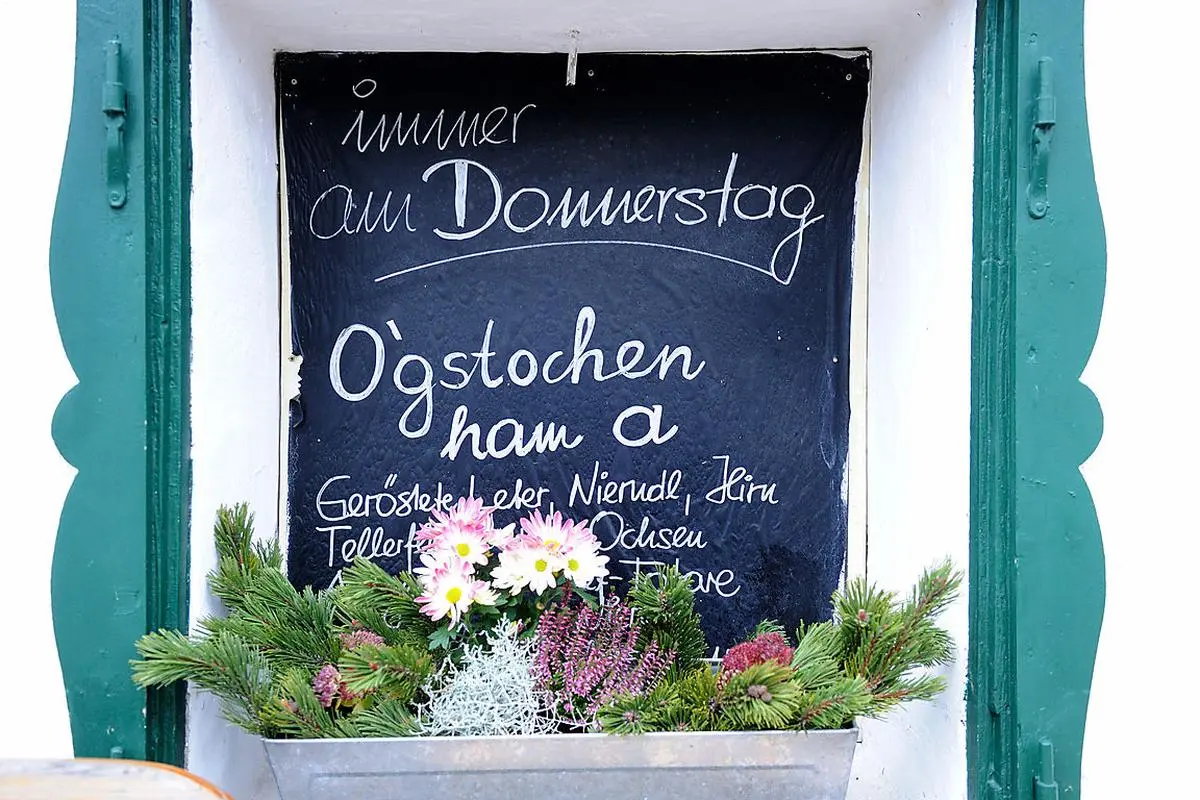 immer
am Donnerstag
O`gstochen
ham a
Geröstete Leber, Nierndl, Hirn
Ochsen